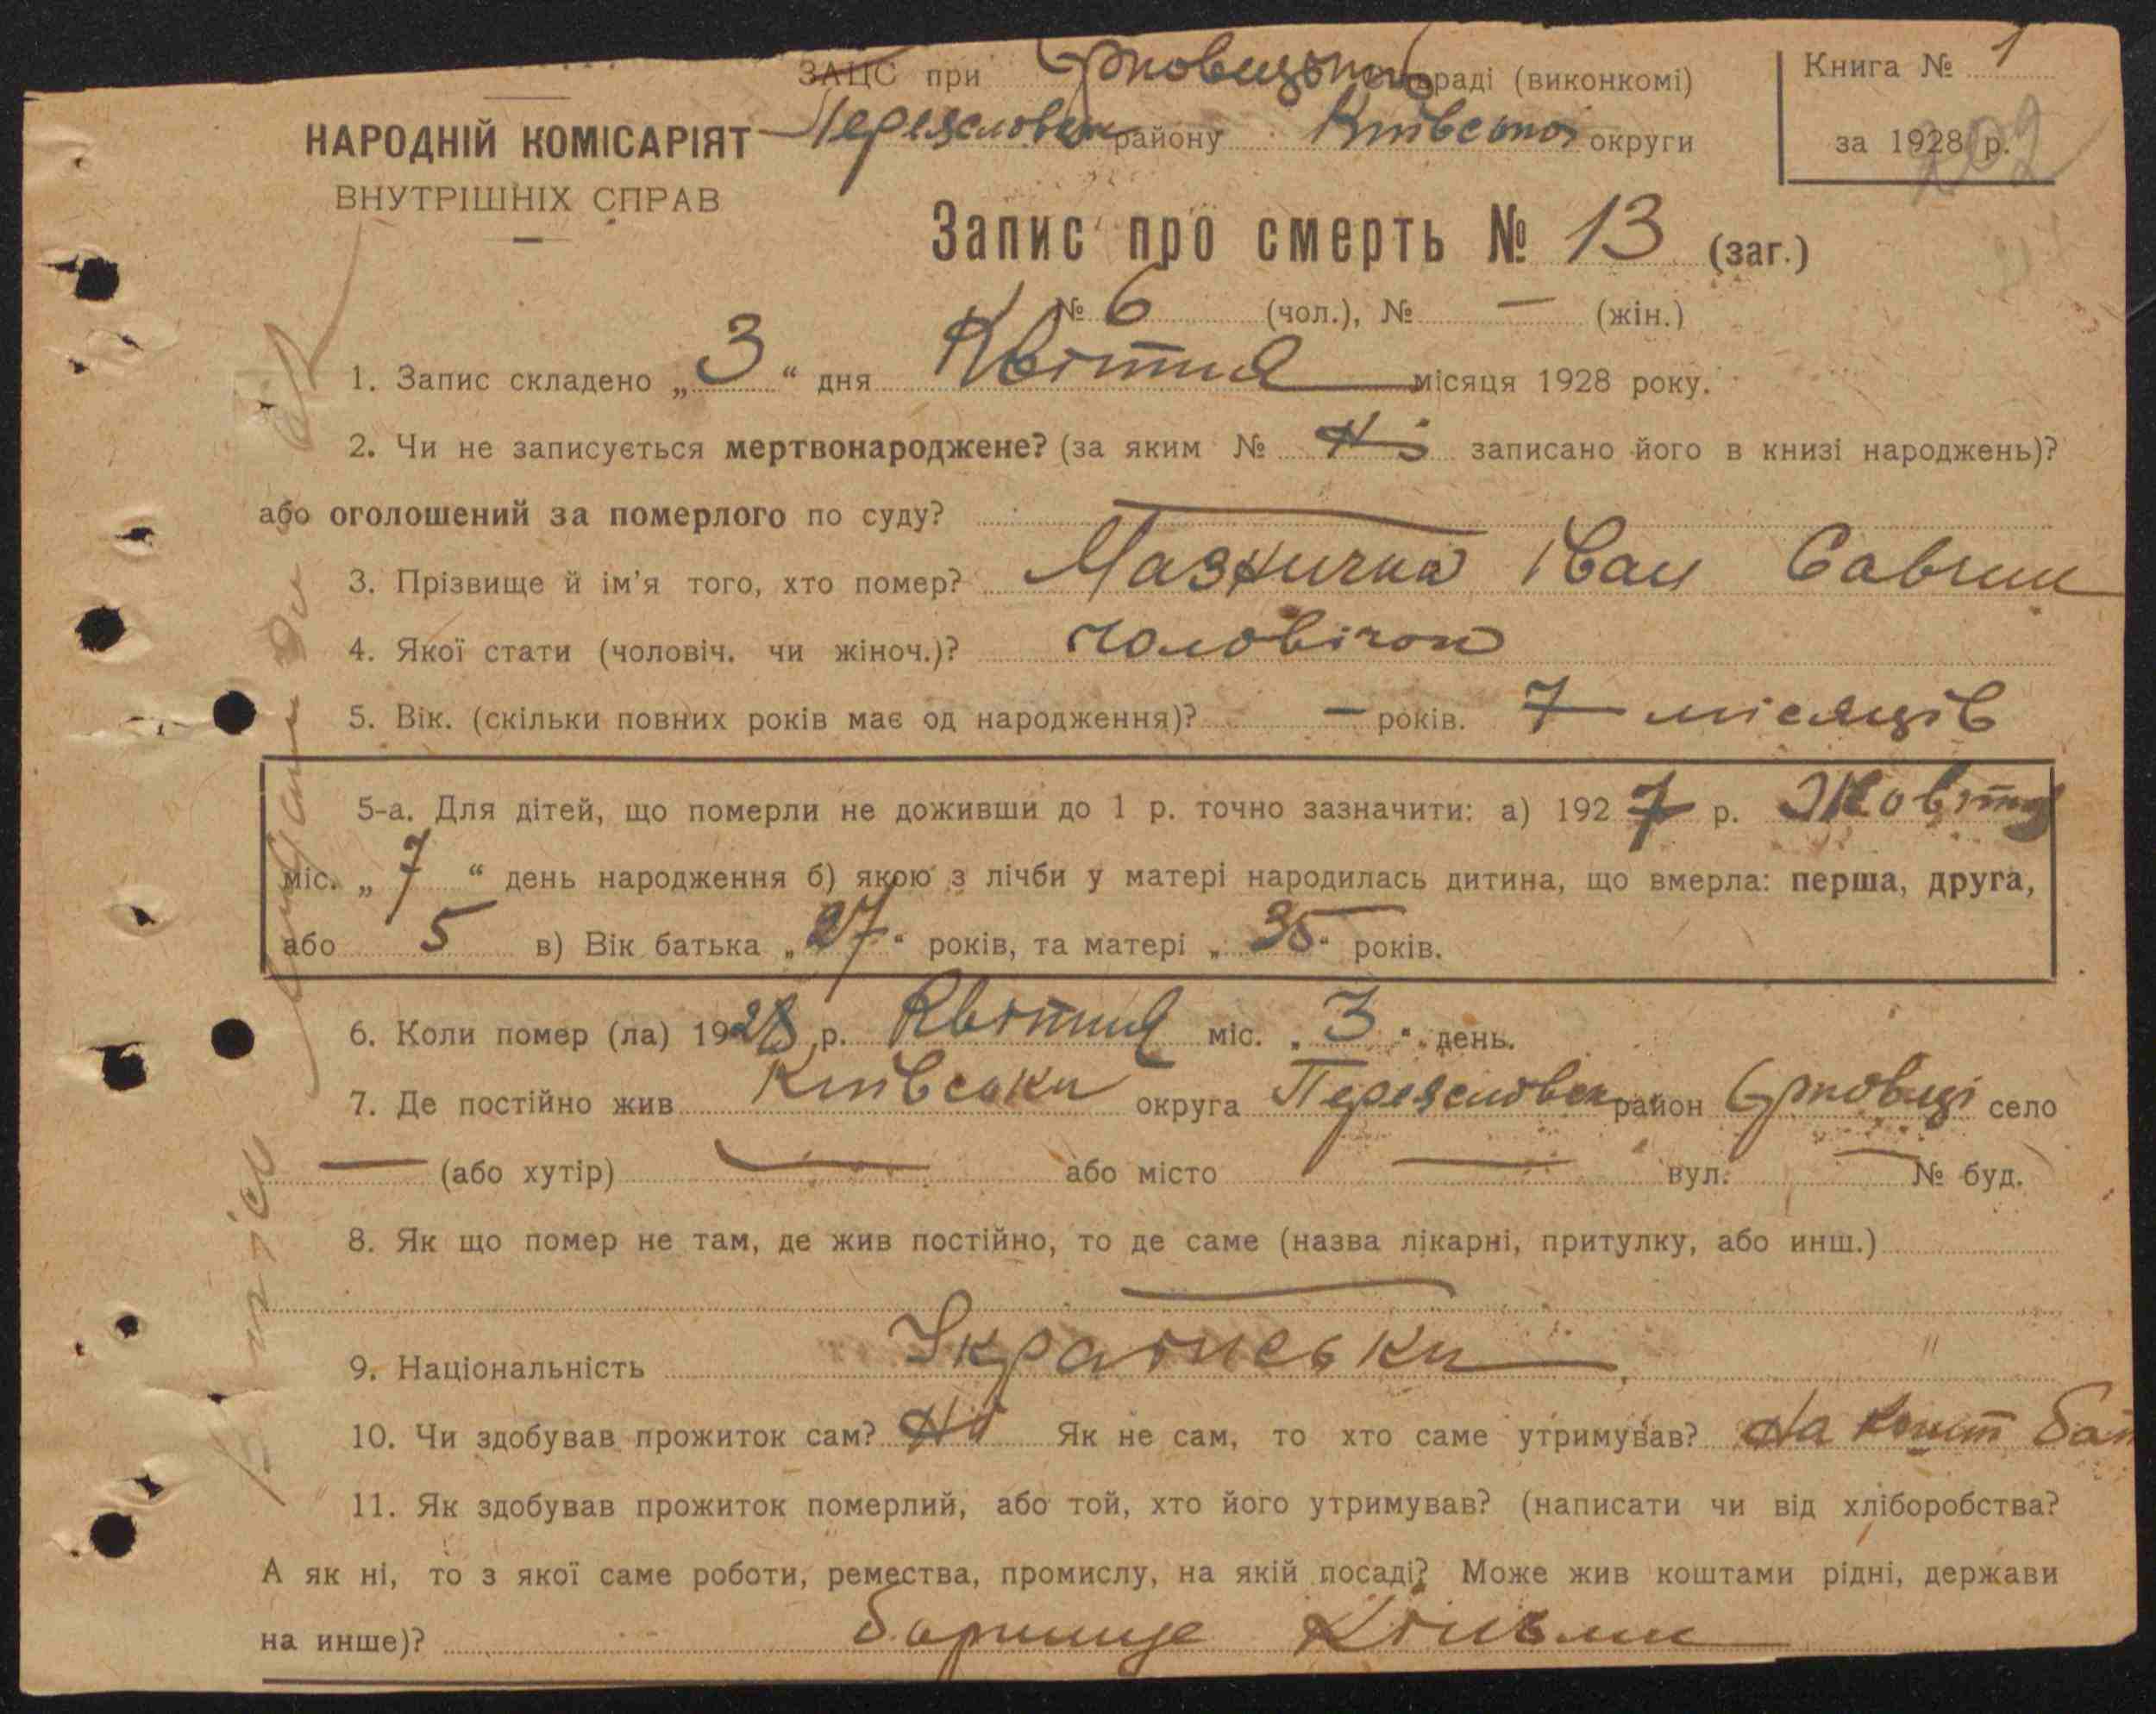 ЗАЦС при Єрковецькій раді (виконкомі)
Книга № 1
НАРОДНІЙ КОМІСАРІЯТ
Переяславськ району Київської округи
за 1928 р.
202
ВНУТРІШНІХ СПРАВ
Запис про смерть № 13 (заг.)
№ 6 (чол.), № — (жін.)
1. Запис складено „3“ дня Квітня місяця 1928 року.
2. Чи не записується мертвонароджене? (за яким № Ні записано його в книзі народжень)?
або оголошений за померлого по суду? —
3. Прізвище й ім'я того, хто помер? Мазничка Іван Савин
4. Якої стати (чоловіч. чи жіноч.)? чоловічої
5. Вік. (скільки повних років має од народження)? — років. 7 місяців
5-а. Для дітей, що померли не доживши до 1 р. точно зазначити: а) 1927 р. Жовтня
міс. „7“ день народження б) якою з лічби у матері народилась дитина, що вмерла: перша, друга,
або 5 в) Вік батька „37“ років, та матері „35“ років.
6. Коли помер (ла) 1928 р. Квітня міс. „3“ день.
7. Де постійно жив Київська округа Переяславськ район Єрковці село
— (або хутір) — або місто — вул. — № буд.
8. Як що помер не там, де жив постійно, то де саме (назва лікарні, притулку, або инш.)
—
9. Національність Українськи
10. Чи здобував прожиток сам? Ні Як не сам, то хто саме утримував? На кошт бат
11. Як здобував прожиток померлий, або той, хто його утримував? (написати чи від хліборобства?
А як ні, то з якої саме роботи, ремества, промислу, на якій посаді? Може жив коштами рідні, держави
на инше)?